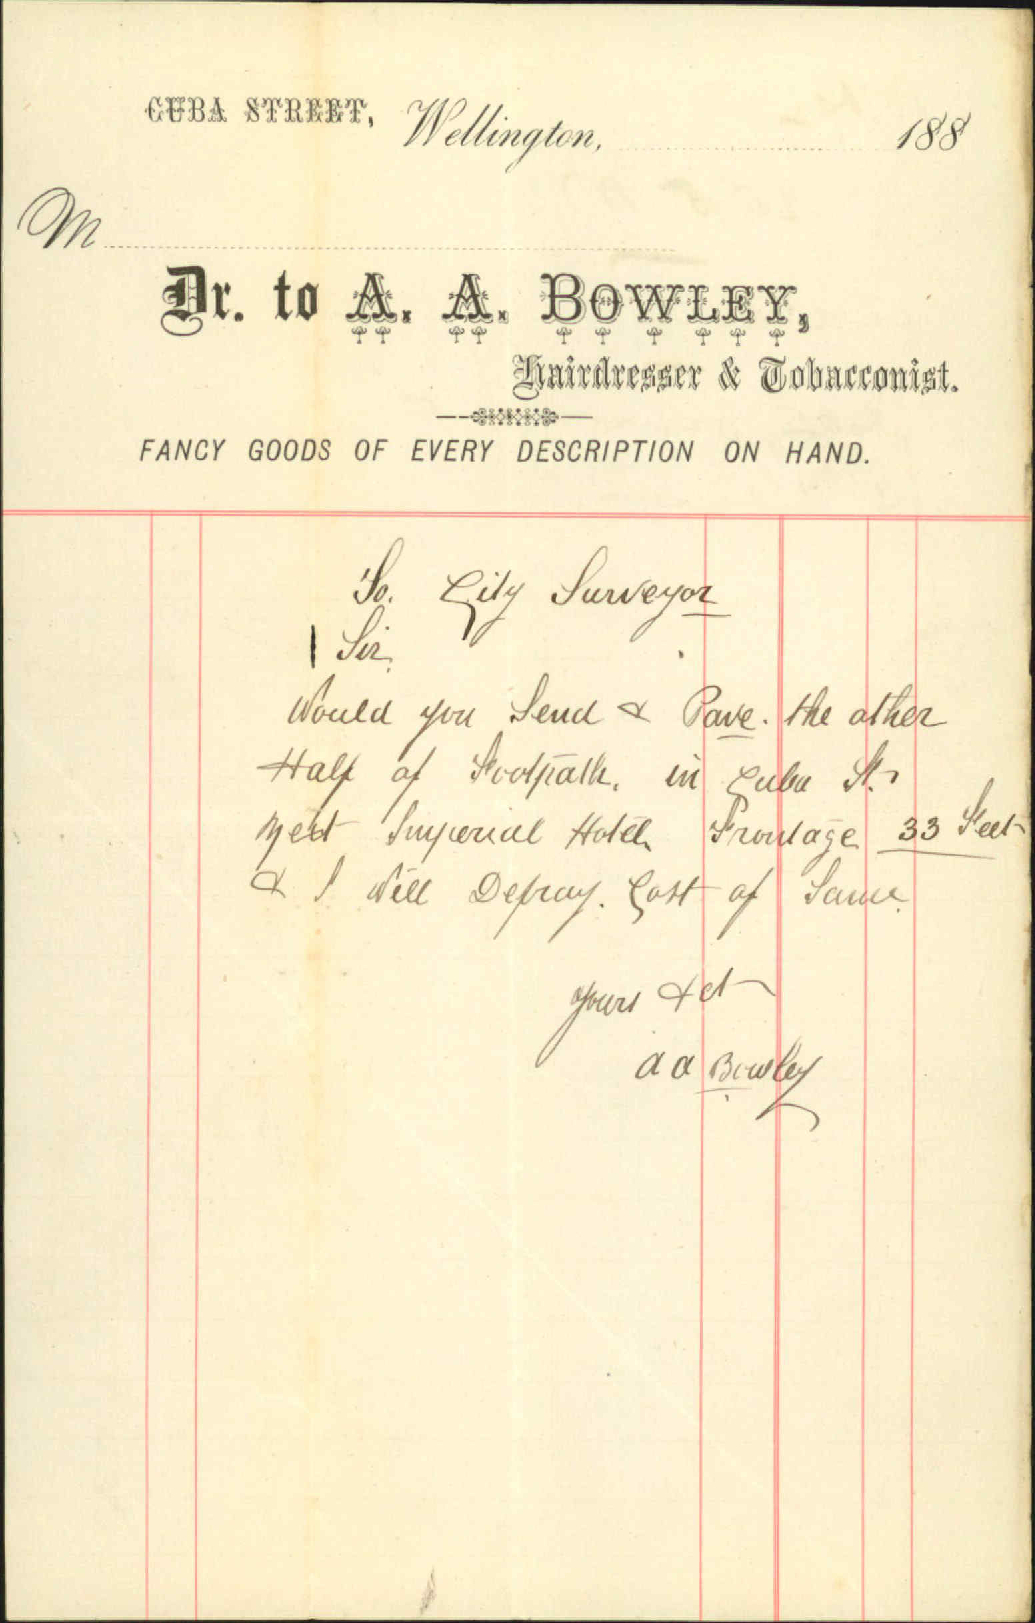 CUBA STREET, Wellington, 188
M
Dr. to A. A. BOWLEY,
Hairdresser & Tobacconist.
FANCY GOODS OF EVERY DESCRIPTION ON HAND.
To. City Surveyor
Sir.
Would you Send & Pave. the other
Half of Footpath. in Cuba St.
Next Imperial Hotel. Frontage 33 Feet
& I Will Defray. Cost of Same.
Yours &ct
A A Bowley